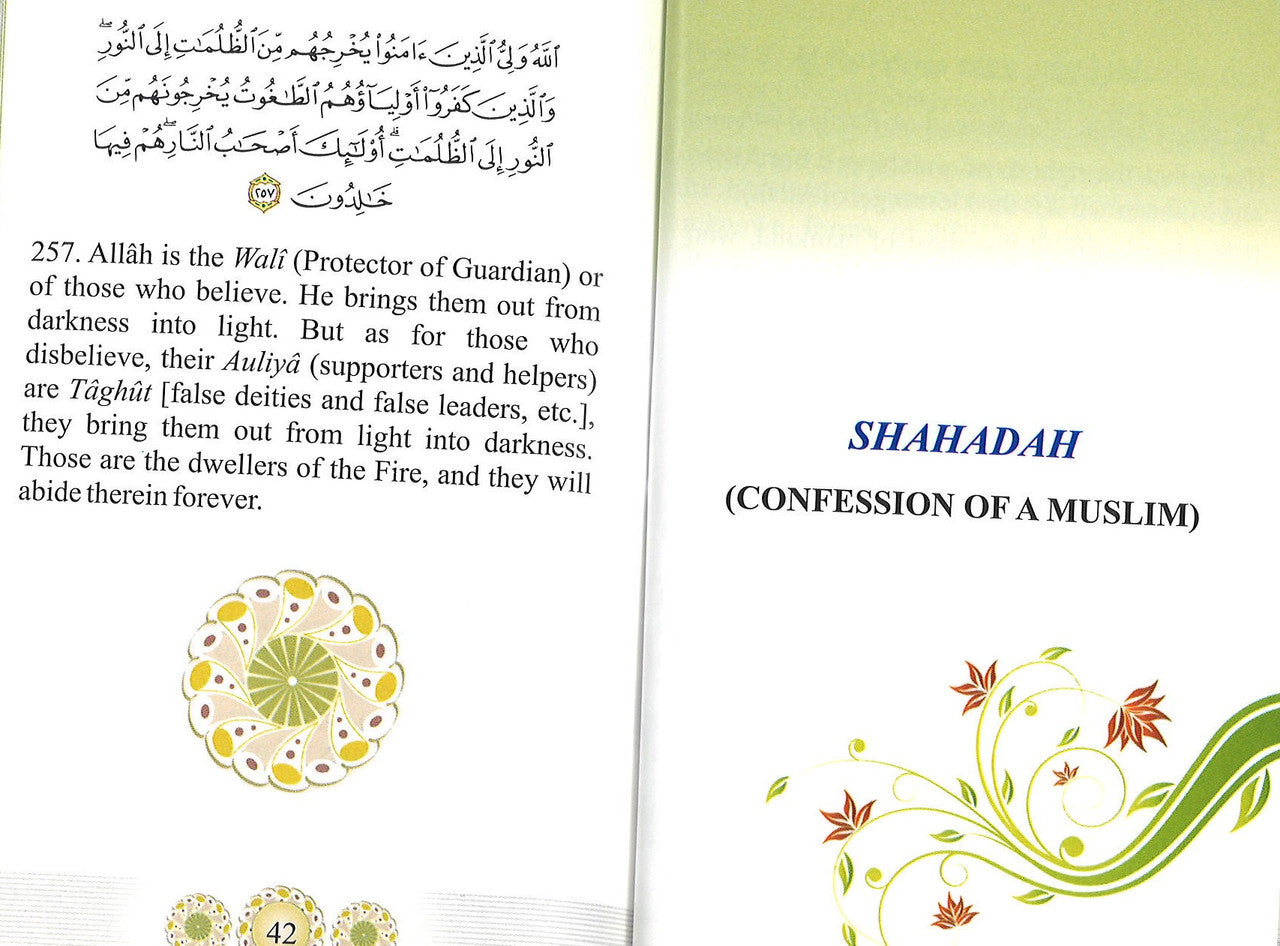 ٱللَّهُ وَلِىُّ ٱلَّذِينَ ءَامَنُوا۟ يُخْرِجُهُم مِّنَ ٱلظُّلُمَٰتِ إِلَى ٱلنُّورِ ۖ
وَٱلَّذِينَ كَفَرُوٓا۟ أَوْلِيَآؤُهُمُ ٱلطَّٰغُوتُ يُخْرِجُونَهُم مِّنَ
ٱلنُّورِ إِلَى ٱلظُّلُمَٰتِ ۗ أُو۟لَٰٓئِكَ أَصْحَٰبُ ٱلنَّارِ ۖ هُمْ فِيهَا
خَٰلِدُونَ ٢٥٧
257. Allâh is the Walî (Protector of Guardian) or
of those who believe. He brings them out from
darkness into light. But as for those who
disbelieve, their Auliyâ (supporters and helpers)
are Tâghût [false deities and false leaders, etc.],
they bring them out from light into darkness.
Those are the dwellers of the Fire, and they will
abide therein forever.
42
SHAHADAH
(CONFESSION OF A MUSLIM)